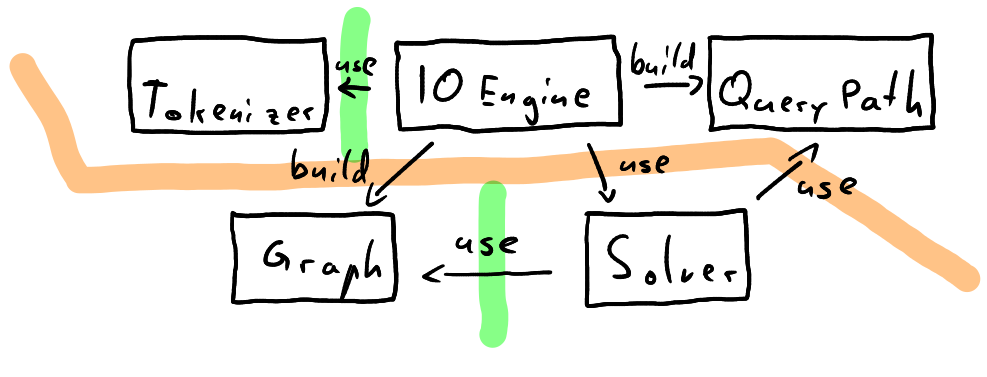 Tokenizer
use
IO Engine
build
Query Path
build
use
use
Graph
use
Solver